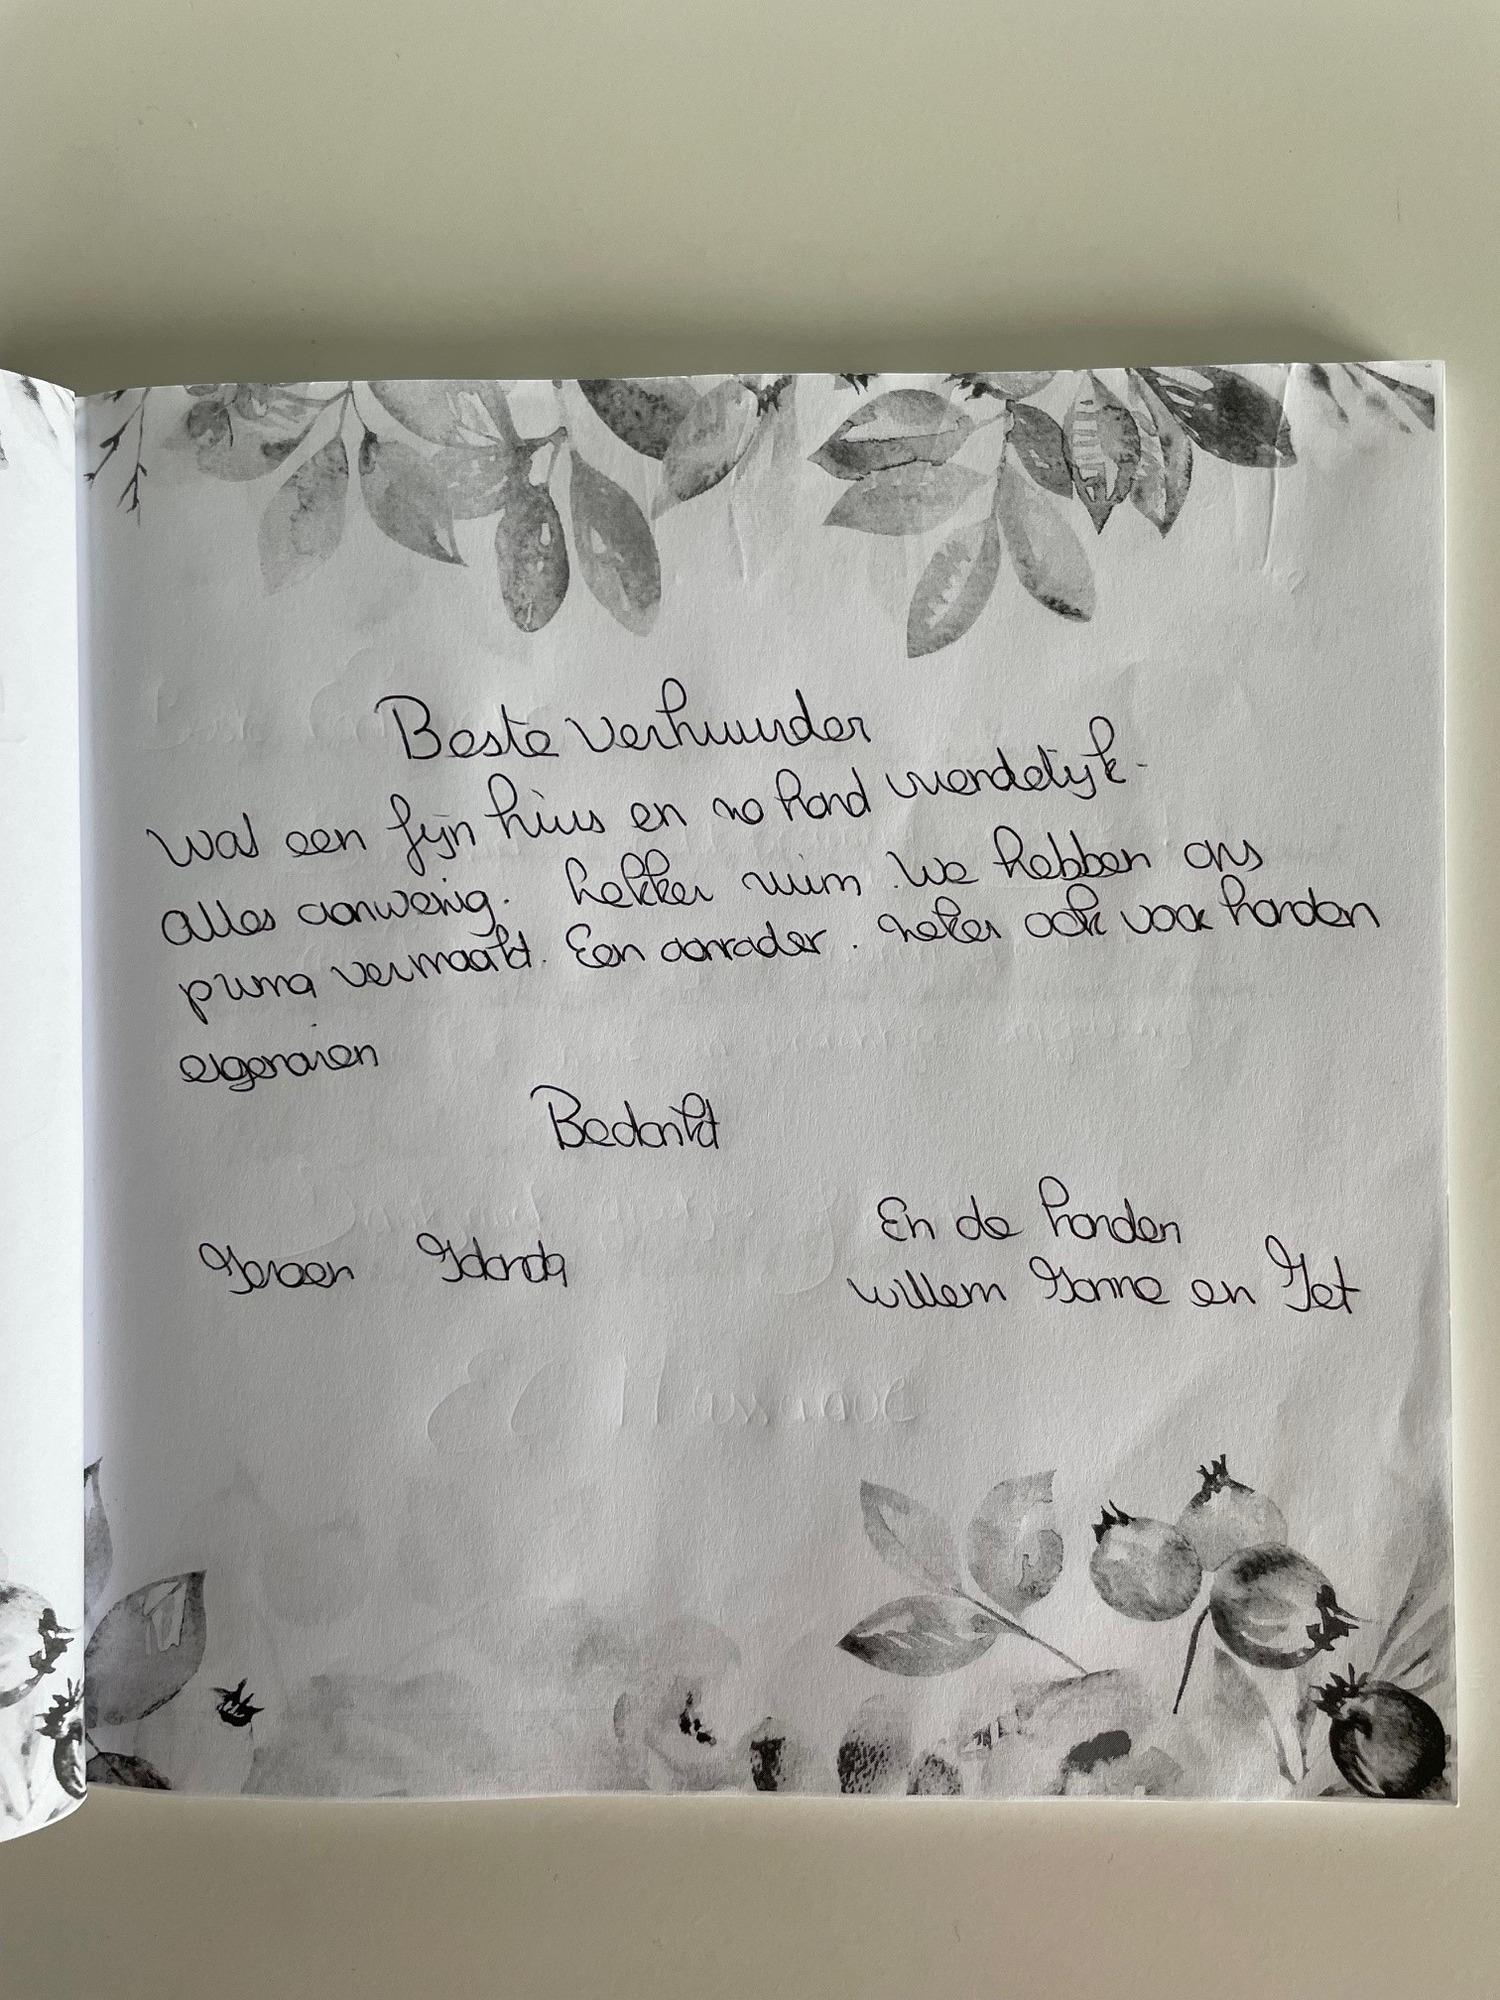 Beste verhuurder
Wat een fijn huis en zo hond vriendelijk.
Alles aanwezig. Lekker ruim. We hebben ons
prima vermaakt. Een aanrader. Zeker ook voor honden
eigenaren
Bedankt
Jeroen Jolanda
En de honden
Willem Janne en Jet